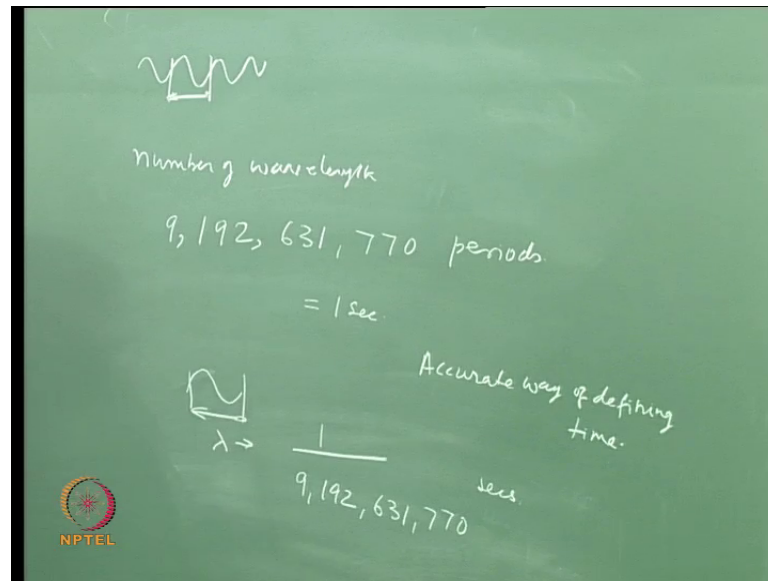 Number of wavelength
9, 192, 631, 770 periods.
= 1 Sec.
Accurate way of defining
time.
λ →
1
9, 192, 631, 770
secs.
NPTEL